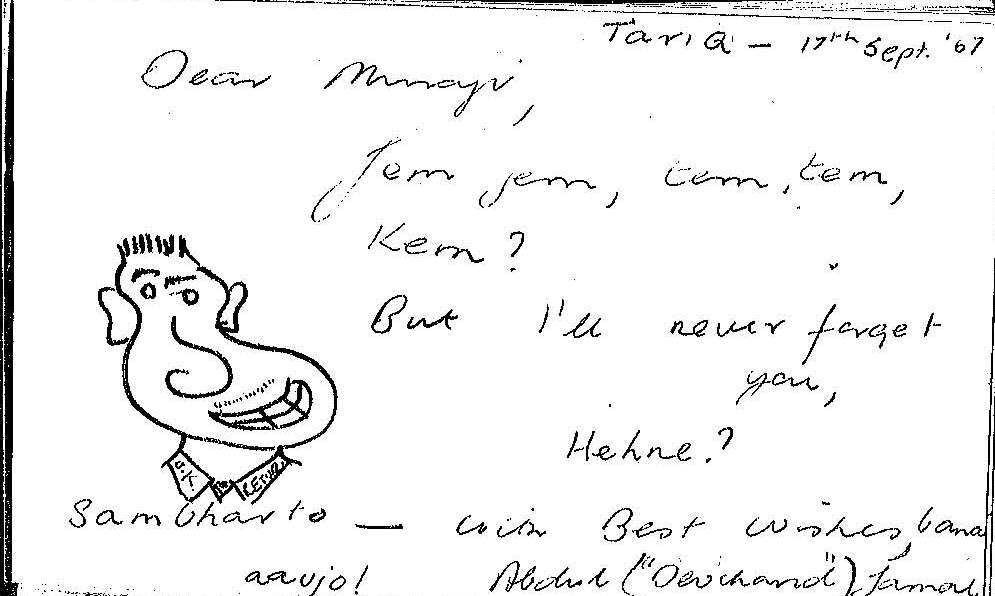 TariQ – 17th Sept. '67
Dear Munaji,
Jem jem, tem, tem,
Kem?
But I'll never forget
you,
Hehne?
U.K.
RETUR
Sambharto — with Best wishes, bana
aavjo! Abdul ("Devchand") Jamal